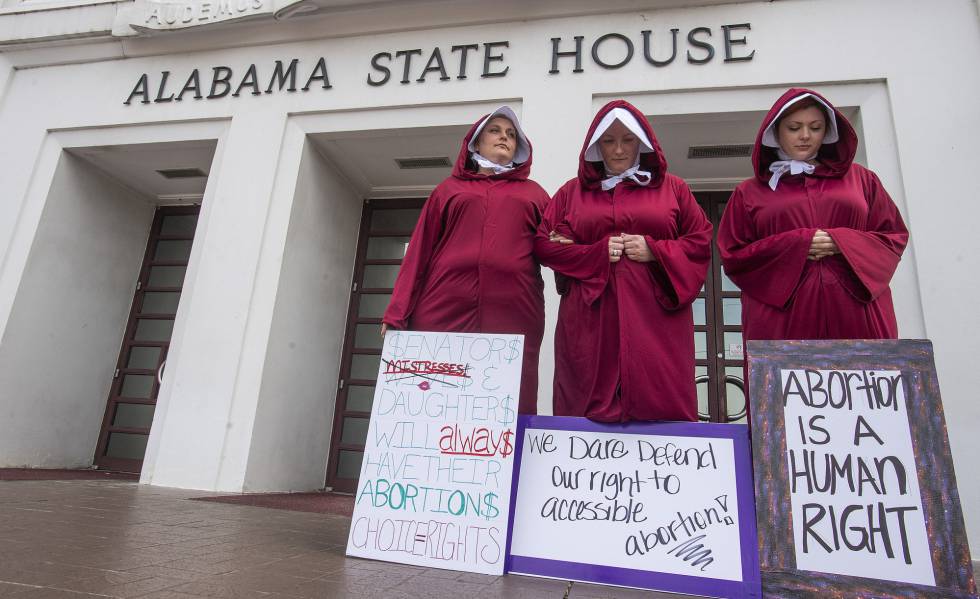 AUDEMUS
ALABAMA STATE HOUSE
$ENATOR$
MISTRESSES
&
DAUGHTER$
WILL alway$
HAVE THEIR
ABORTION$
CHOICE=RIGHTS
We Dare Defend
our right to
accessible
abortion!
ABortion
IS A
HUMAN
RIGHT